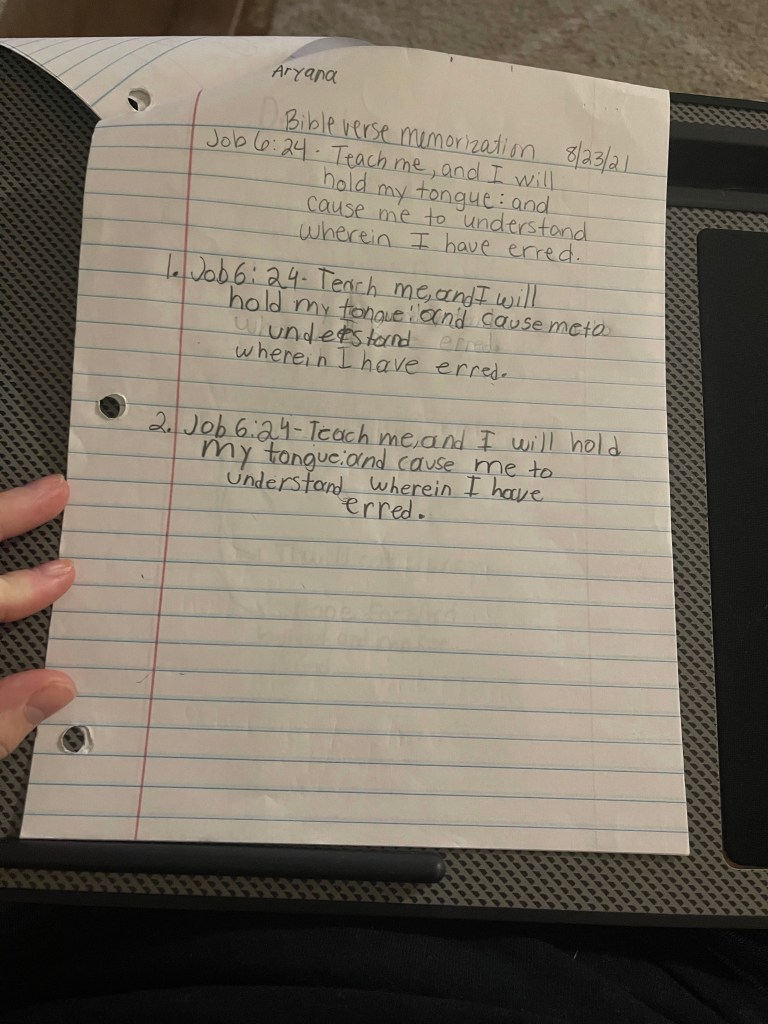 Aryana
Bible verse memorization 8/23/21
Job 6:24 - Teach me, and I will
hold my tongue: and
cause me to understand
wherein I have erred.
1. Job 6: 24- Teach me, and I will
hold my tongue: and cause me to
understand
wherein I have erred.
2. Job 6:24- Teach me, and I will hold
my tongue: and cause me to
understand wherein I have
erred.